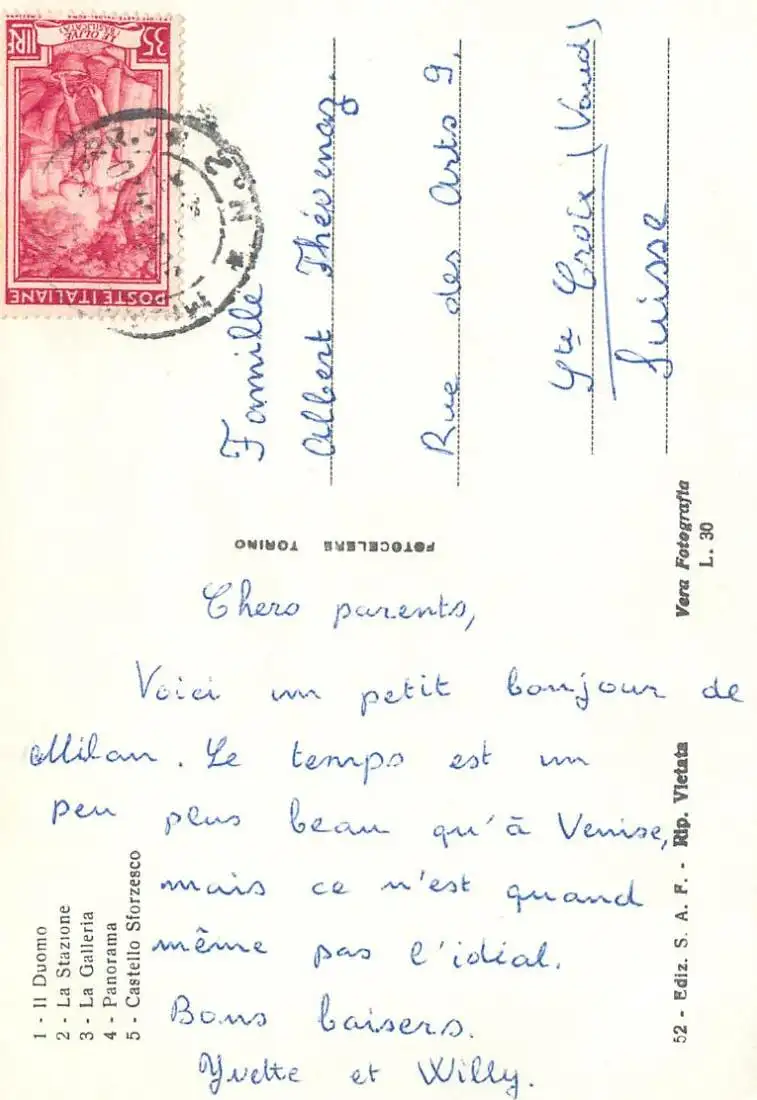 35 LIRE
LE OLIVE
(BASILICATA)
POSTE ITALIANE
Famille
Albert Thévenaz,
Rue des Arts 9,
Ste Croix (Vaud)
Suisse
FOTOCELERE TORINO
Vera Fotografia
L. 30
Chers parents,
Voici un petit bonjour de
Milan. Le temps est un
peu plus beau qu'à Venise,
mais ce n'est quand
même pas l'idéal.
Bons baisers.
Yvette et Willy.
1 - Il Duomo
2 - La Stazione
3 - La Galleria
4 - Panorama
5 - Castello Sforzesco
52 - Ediz. S. A. F. - Rip. Vietata